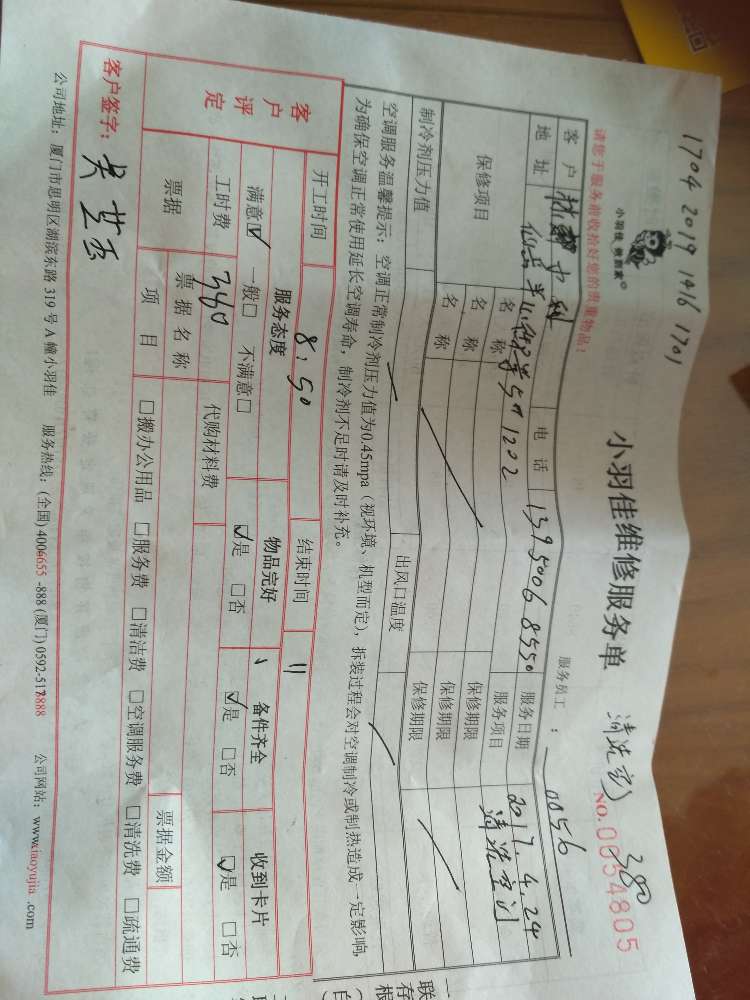 1704 2019 1416 1701
小羽佳 救到家
小羽佳维修服务单
清洗 380
NO.0054805
请您于服务前收拾好您的贵重物品：
服务员工： 0056
客户 电话 13950068550 服务日期 2017.4.24
地址 1202 服务项目 清洗空调
保修项目 名称 保修期限
名称 保修期限
名称 保修期限
制冷剂压力值 出风口温度
空调服务温馨提示：空调正常制冷剂压力值为0.45mpa（视环境、机型而定），拆装过程会对空调制冷或制热造成一定影响，
为确保空调正常使用延长空调寿命，制冷剂不足时请及时补充。
开工时间 8:50 结束时间 11
客户评定 服务态度 物品完好 备件齐全 收到卡片
满意☑ 一般□ 不满意□ ☑是 □否 ☑是 □否 ☑是 □否
工时费 380 代购材料费
票据 票据名称 票据金额
项目 □搬办公用品 □服务费 □清洁费 □空调服务费 □清洗费 □疏通费
客户签字：
公司地址：厦门市思明区湖滨东路 319 号 A 幢小羽佳 服务热线：(全国) 4006655 -888 (厦门) 0592-517888 公司网站：www.iaoyujia .com